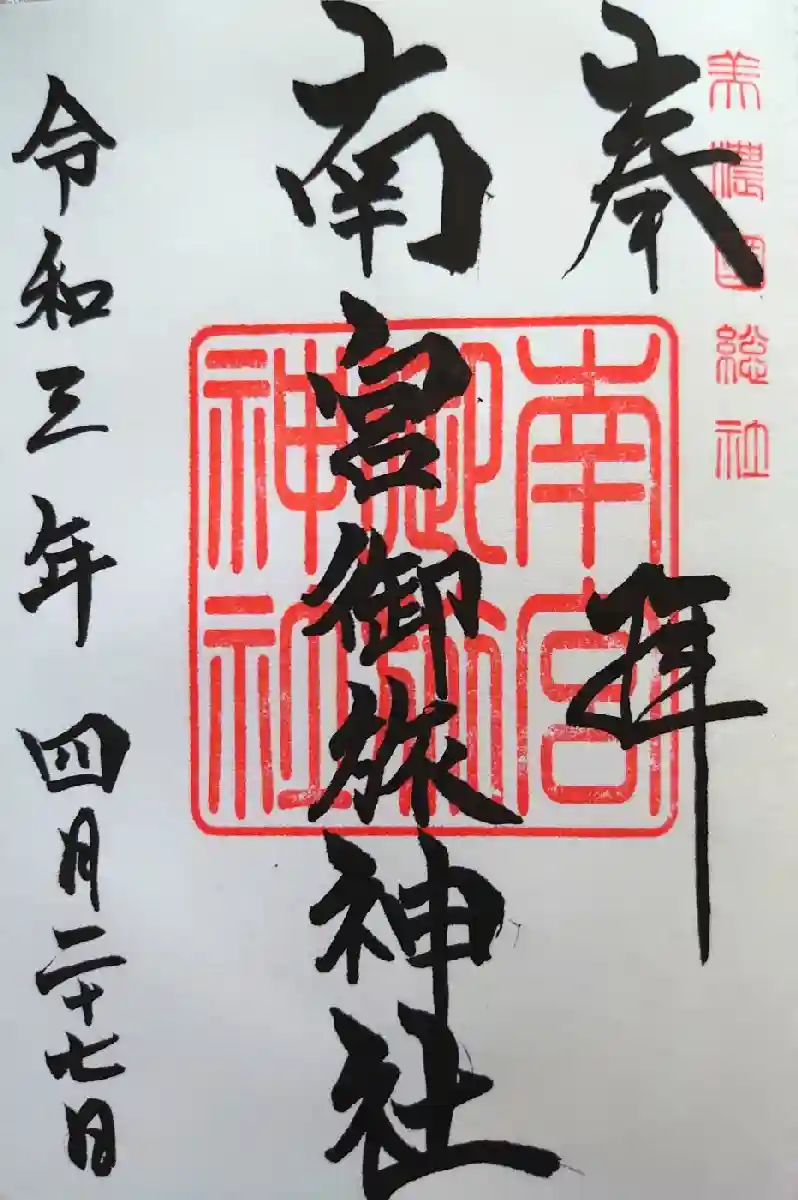 美濃國総社
奉拝
南宮御旅神社
南宮御旅神社
令和三年四月二十七日